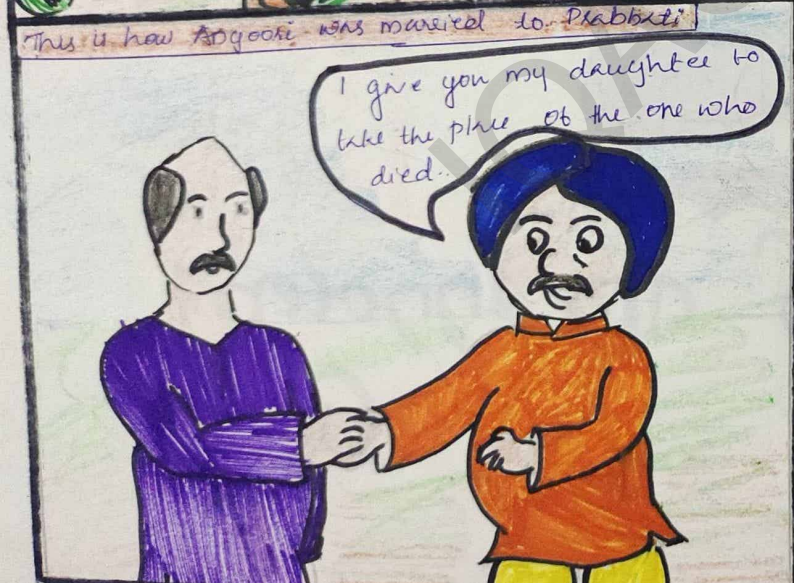 This is how Angoori was married to Prabhati
I give you my daughter to
take the place of the one who
died..